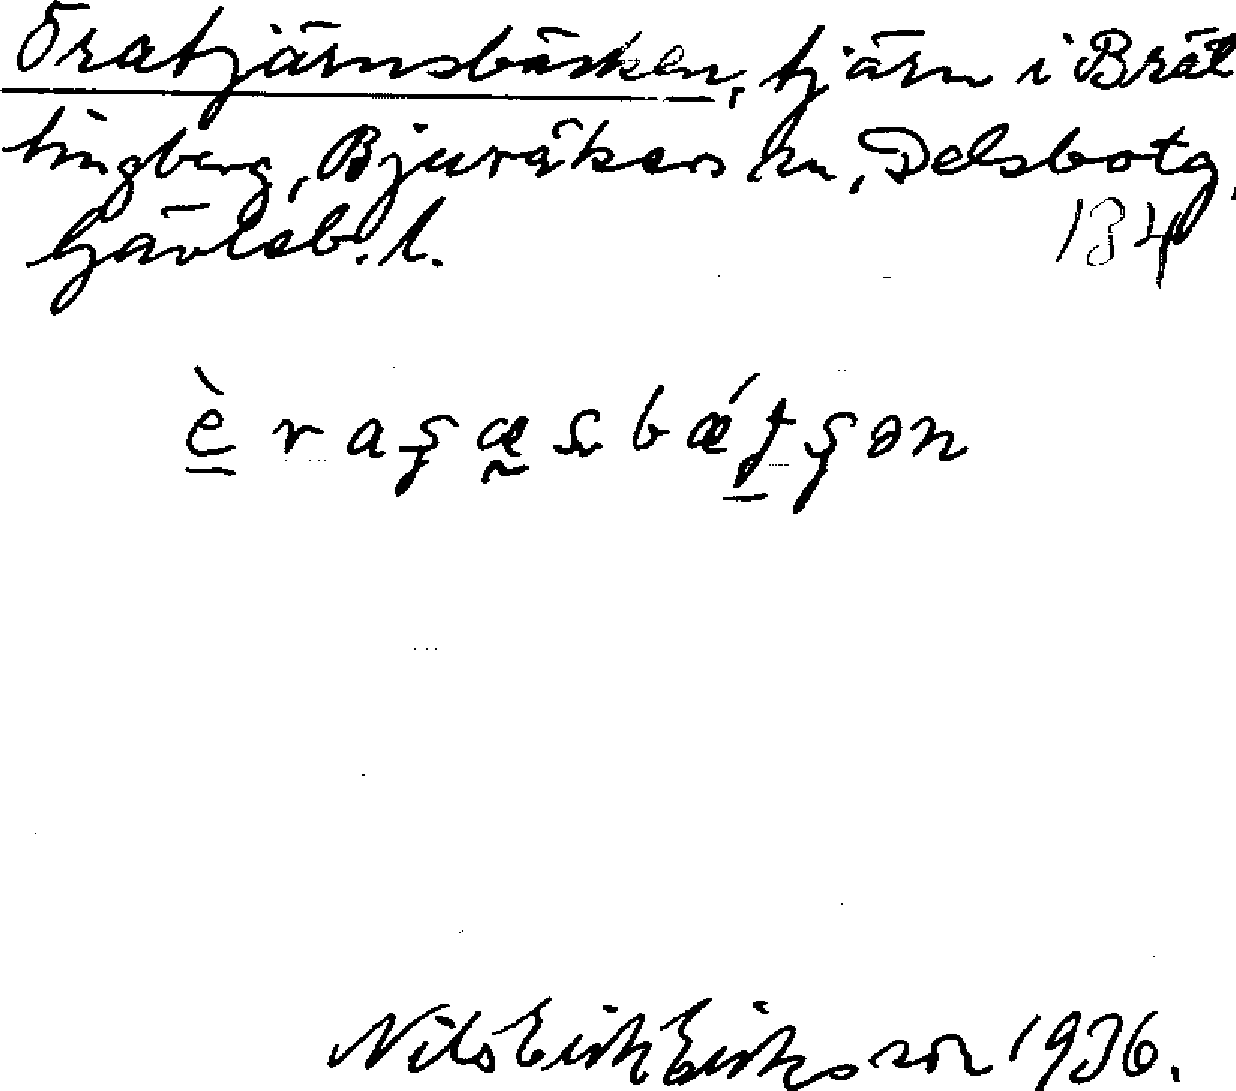 Öratjärnsbäcken, tjärn i Brät
tingberg, Bjuråkers sn, Delsbotg,
Gävleb. l.
134
è r a ş æ s b ǽ t ş ə n
Nils Erik Eriksson 1936.